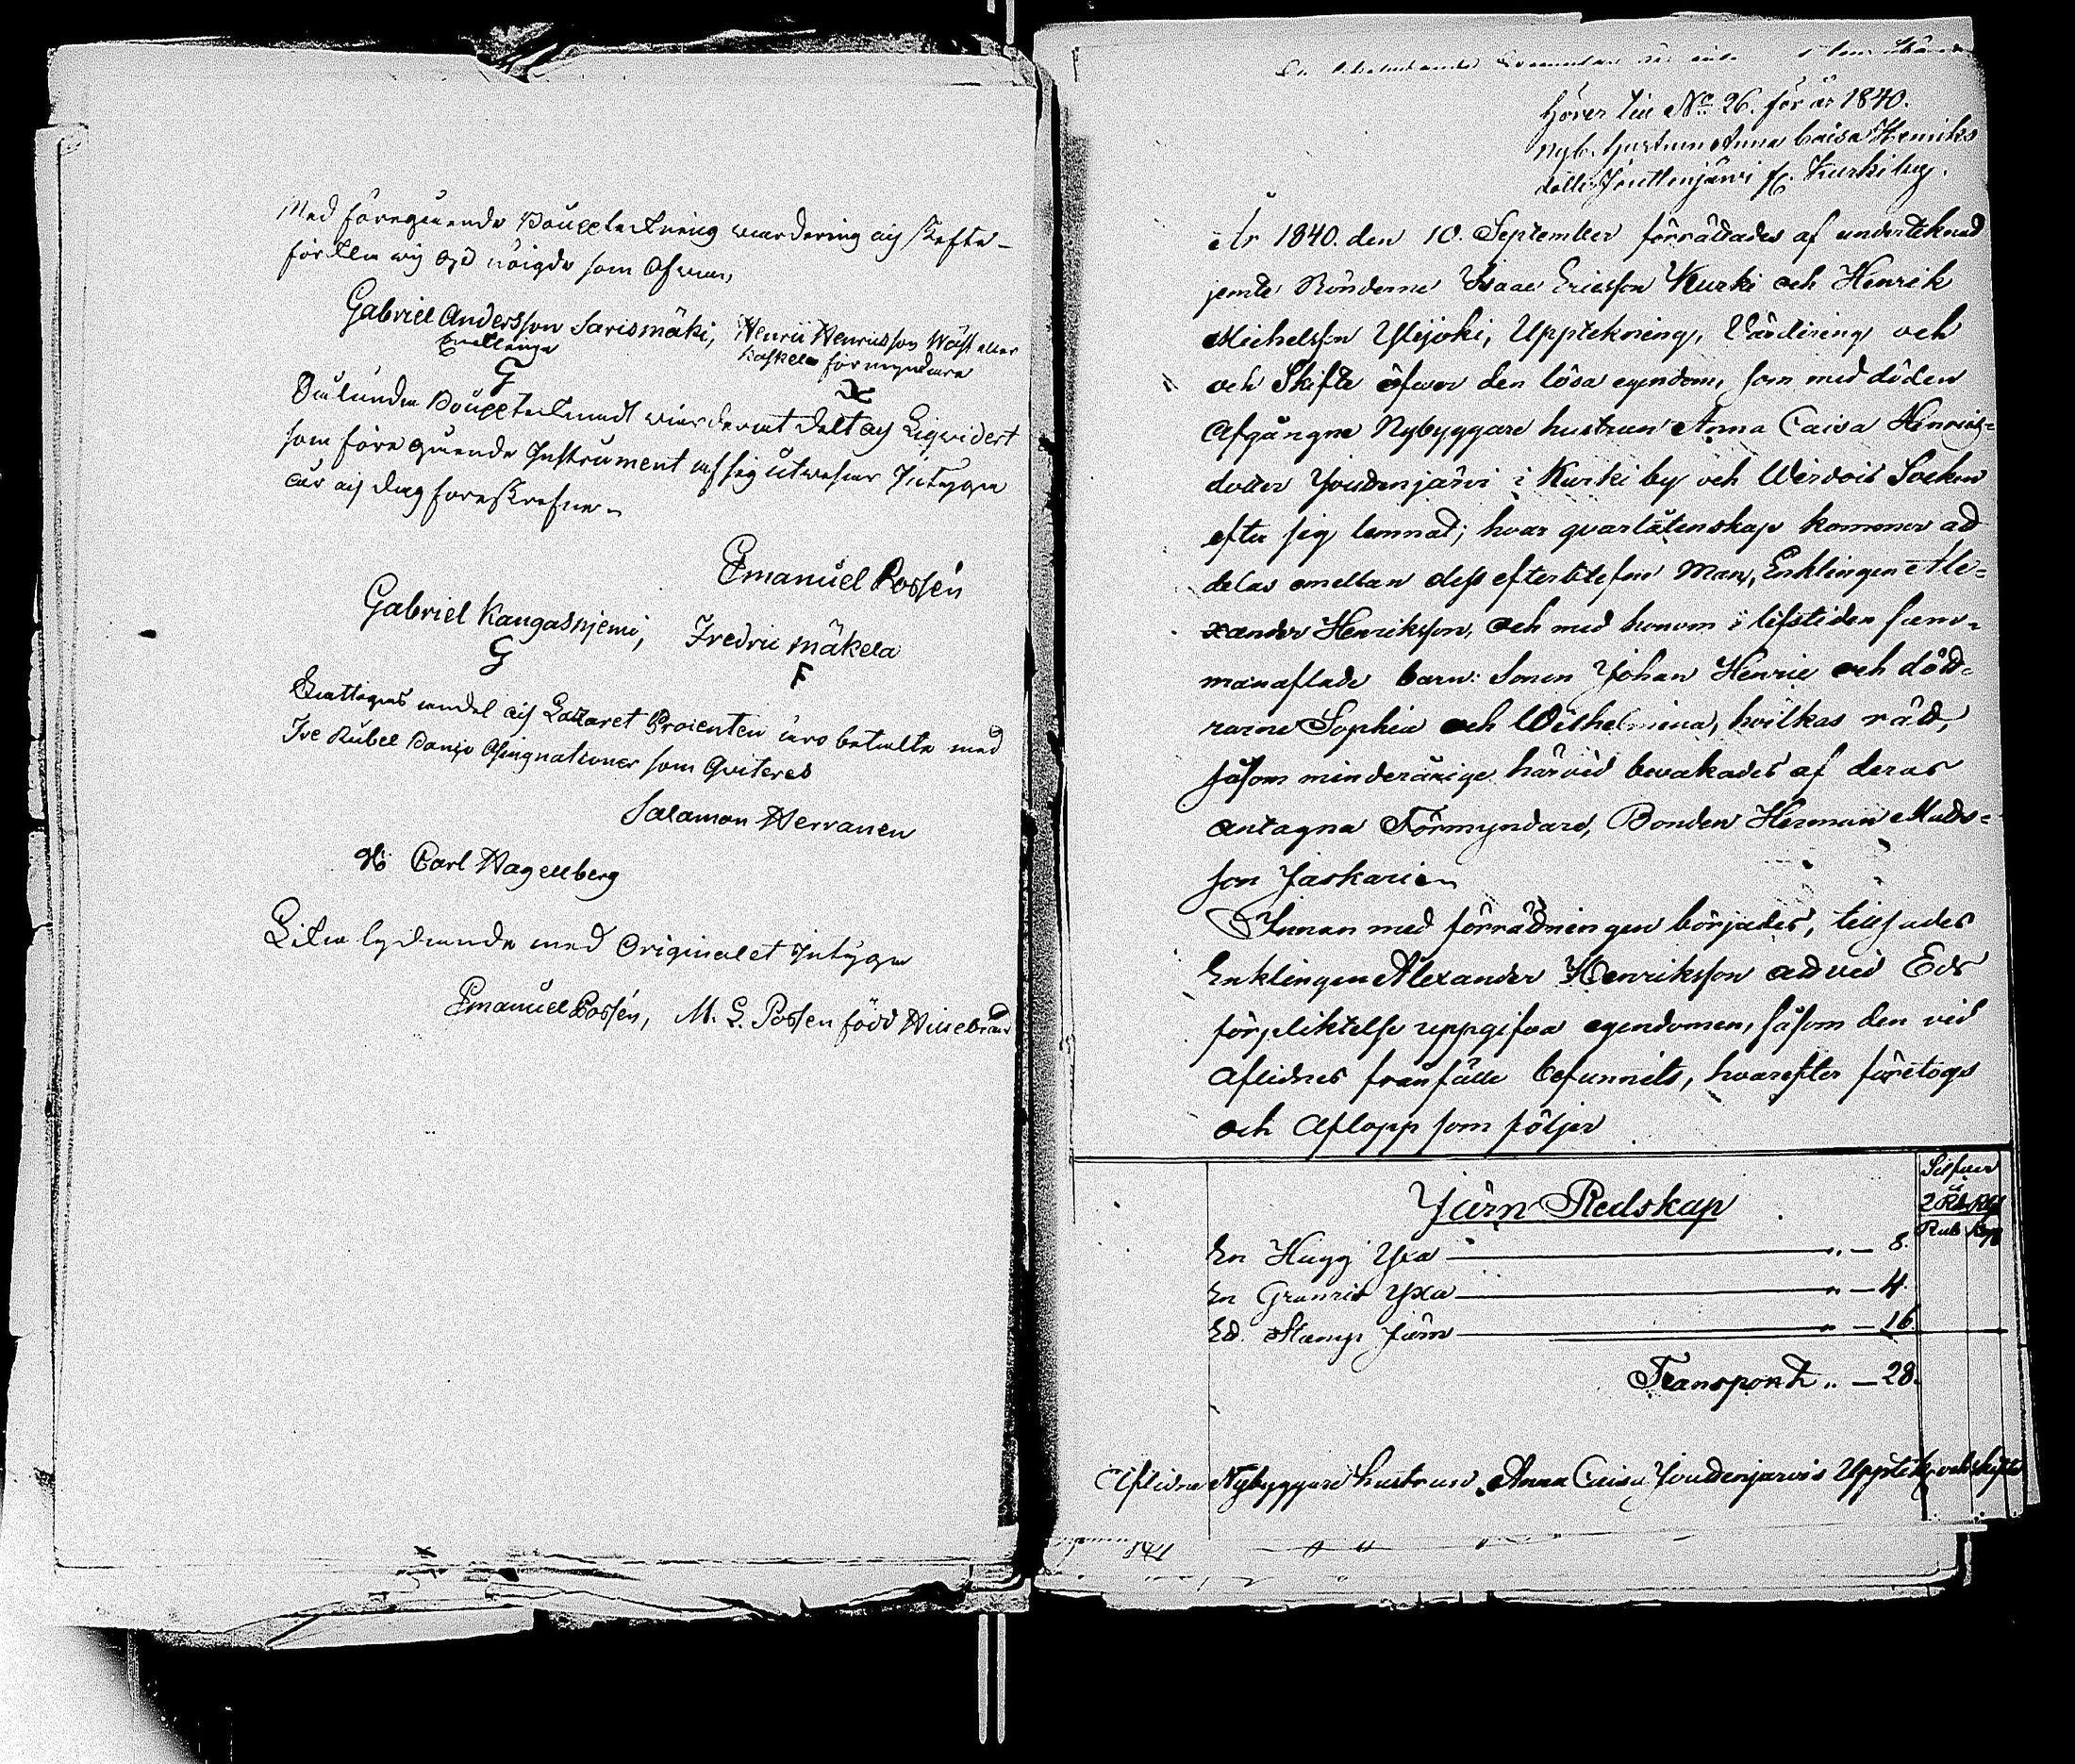 Med föregående Bouppteckning wardering och skefte
förklla wij oss nöigda som Ofwan,
Gabriel Andersson Sarismäki, Henric Henricsson Wäst eller
Encklinge Koskela förmyndare
G
Sålunda Bouppteknadt wärderat delt och Liqwidert
som föregående Instrument af sig utwisar Intyga
år och dag foreskrefne
Emanuel Possén
Gabriel Kangasnjemi, Fredric Mäkelä
G F
Fattigas andel och Lazaret Procenten äro betalte med
Tve Rubel Banco Assignationer som Qviteres
Salamon Herranen
Carl Hagelberg
Lika lydande med Originalet Intyga
Emanuel Possén, M. L. Possen född Hillebrad
hörer till No 26. för år 1840.
Nyb. hustrun Anna Caisa Henriks
dotter Jouttenjärvi fr. Kurki by.
År 1840. den 10. September förrättades af underteknad
jemte Bönderne Isaac Ericsson Kurki och Henrik
Michelsson Ylijoki, Upptekning, Värdering och
och Skifte öfwer den lösa egendom, som med döden
Afgångne Nybyggare hustrun Anna Caisa Henrics=
dotter Jouttenjärvi i Kurki by och Wirdois Socken
efter sig lemnat; hvar qvarlåtenskap kommer att
delas emellan dess efterlefne Man, Enklingen Ale=
xander Henriksson, och med honom i lifstiden sam=
manaflade barn: Sonen Johan Henric och dött=
rarne Sophia och Wilhelmina, hvilkas rätt,
såsom minderårige härvid bevakades af deras
antagna Förmyndare, Bonden Herman Mats=
son Jaskari
Innan med förrättningen börjades, tillsades
Enklingen Alexander Henriksson att vid Eds
förpliktelse uppgifva egendomen, såsom den vid
Aflidnes frånfälle befunnits, hvarefter företogs
och Aflopp som följer
Silfver
Järn Redskap
Rub Kop
En Hugg Yxa " — 8.
En Granris Yxa " — 4.
Ett Stamp Järn " — 16.
Transport " — 28.
Aflidna Nybyggare hustrun Anna Caisa Jouttenjärvis Upptekn och skifte